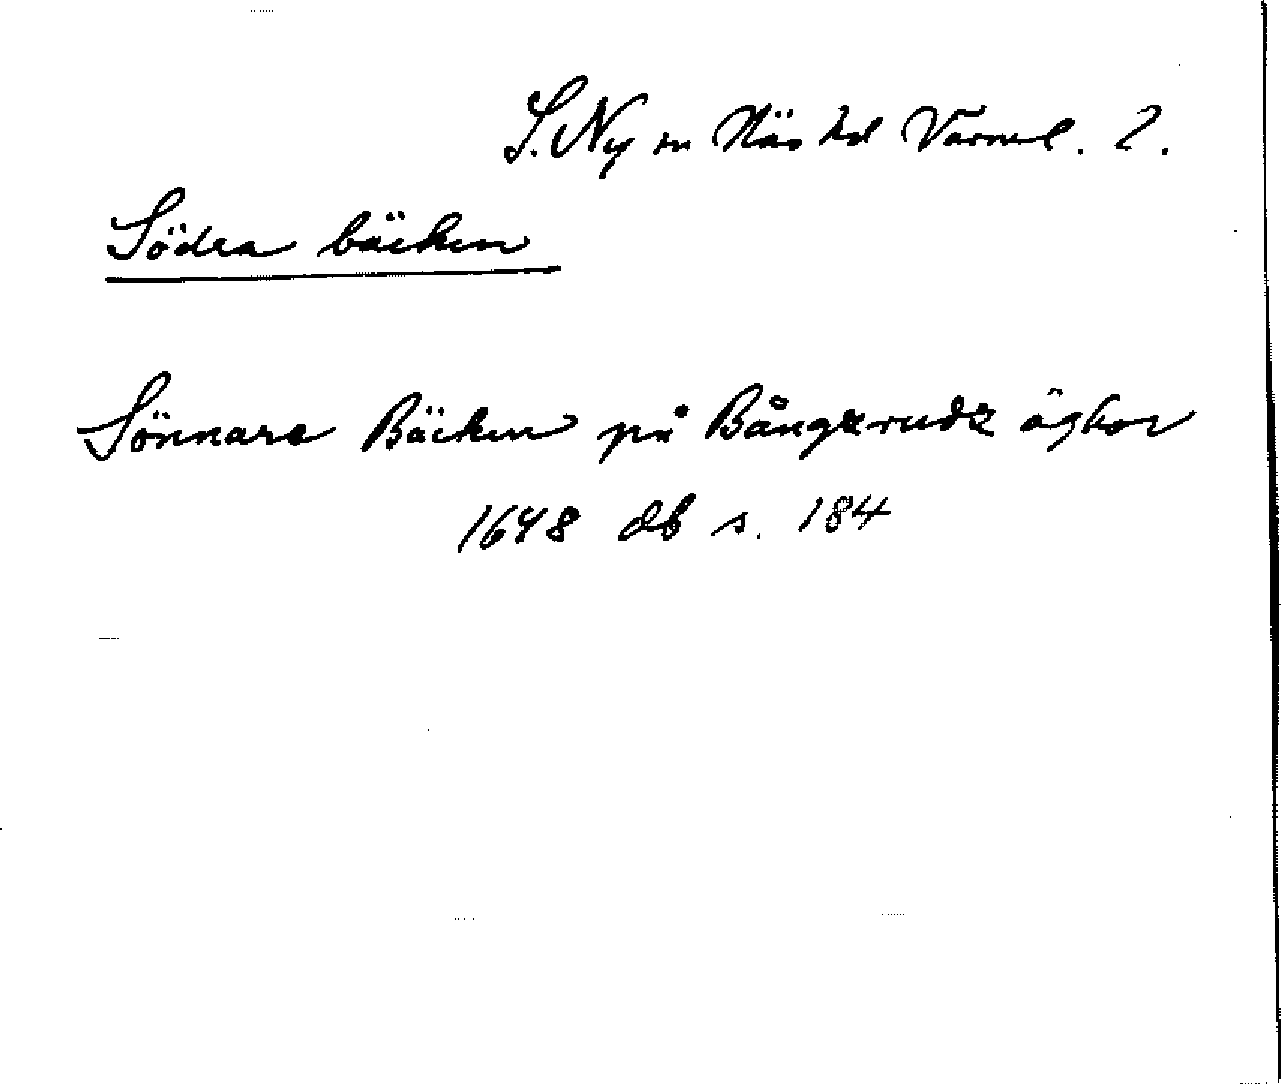 S. Ny sn Näs hd Värml. 2.
Södra bäcken
Sönnare Bäcken på Bångzrudz äghor
1648 db s. 184